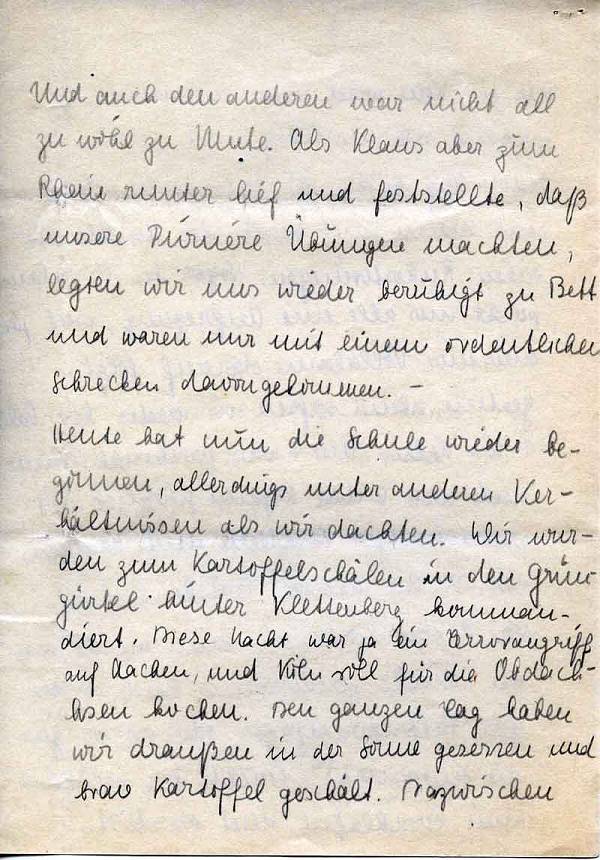 Und auch den anderen war nicht all
zu wohl zu Mute. Als Klaus aber zum
Rhein runter lief und feststellte, daß
unsere Pioniere Übungen machten,
legten wir uns wieder beruhigt zu Bett
und waren nur mit einem ordentlichen
Schrecken davongekommen. –
Heute hat nun die Schule wieder be-
gonnen, allerdings unter anderen Ver-
hältnissen als wir dachten. Wir wur-
den zum Kartoffelschälen in den Grün-
gürtel hinter Klettenberg komman-
diert. Diese Nacht war ja ein Terrorangriff
auf Aachen, und Köln soll für die Obdach-
losen kochen. Den ganzen Tag haben
wir draußen in der Sonne gesessen und
brav Kartoffel geschält. Dazwischen